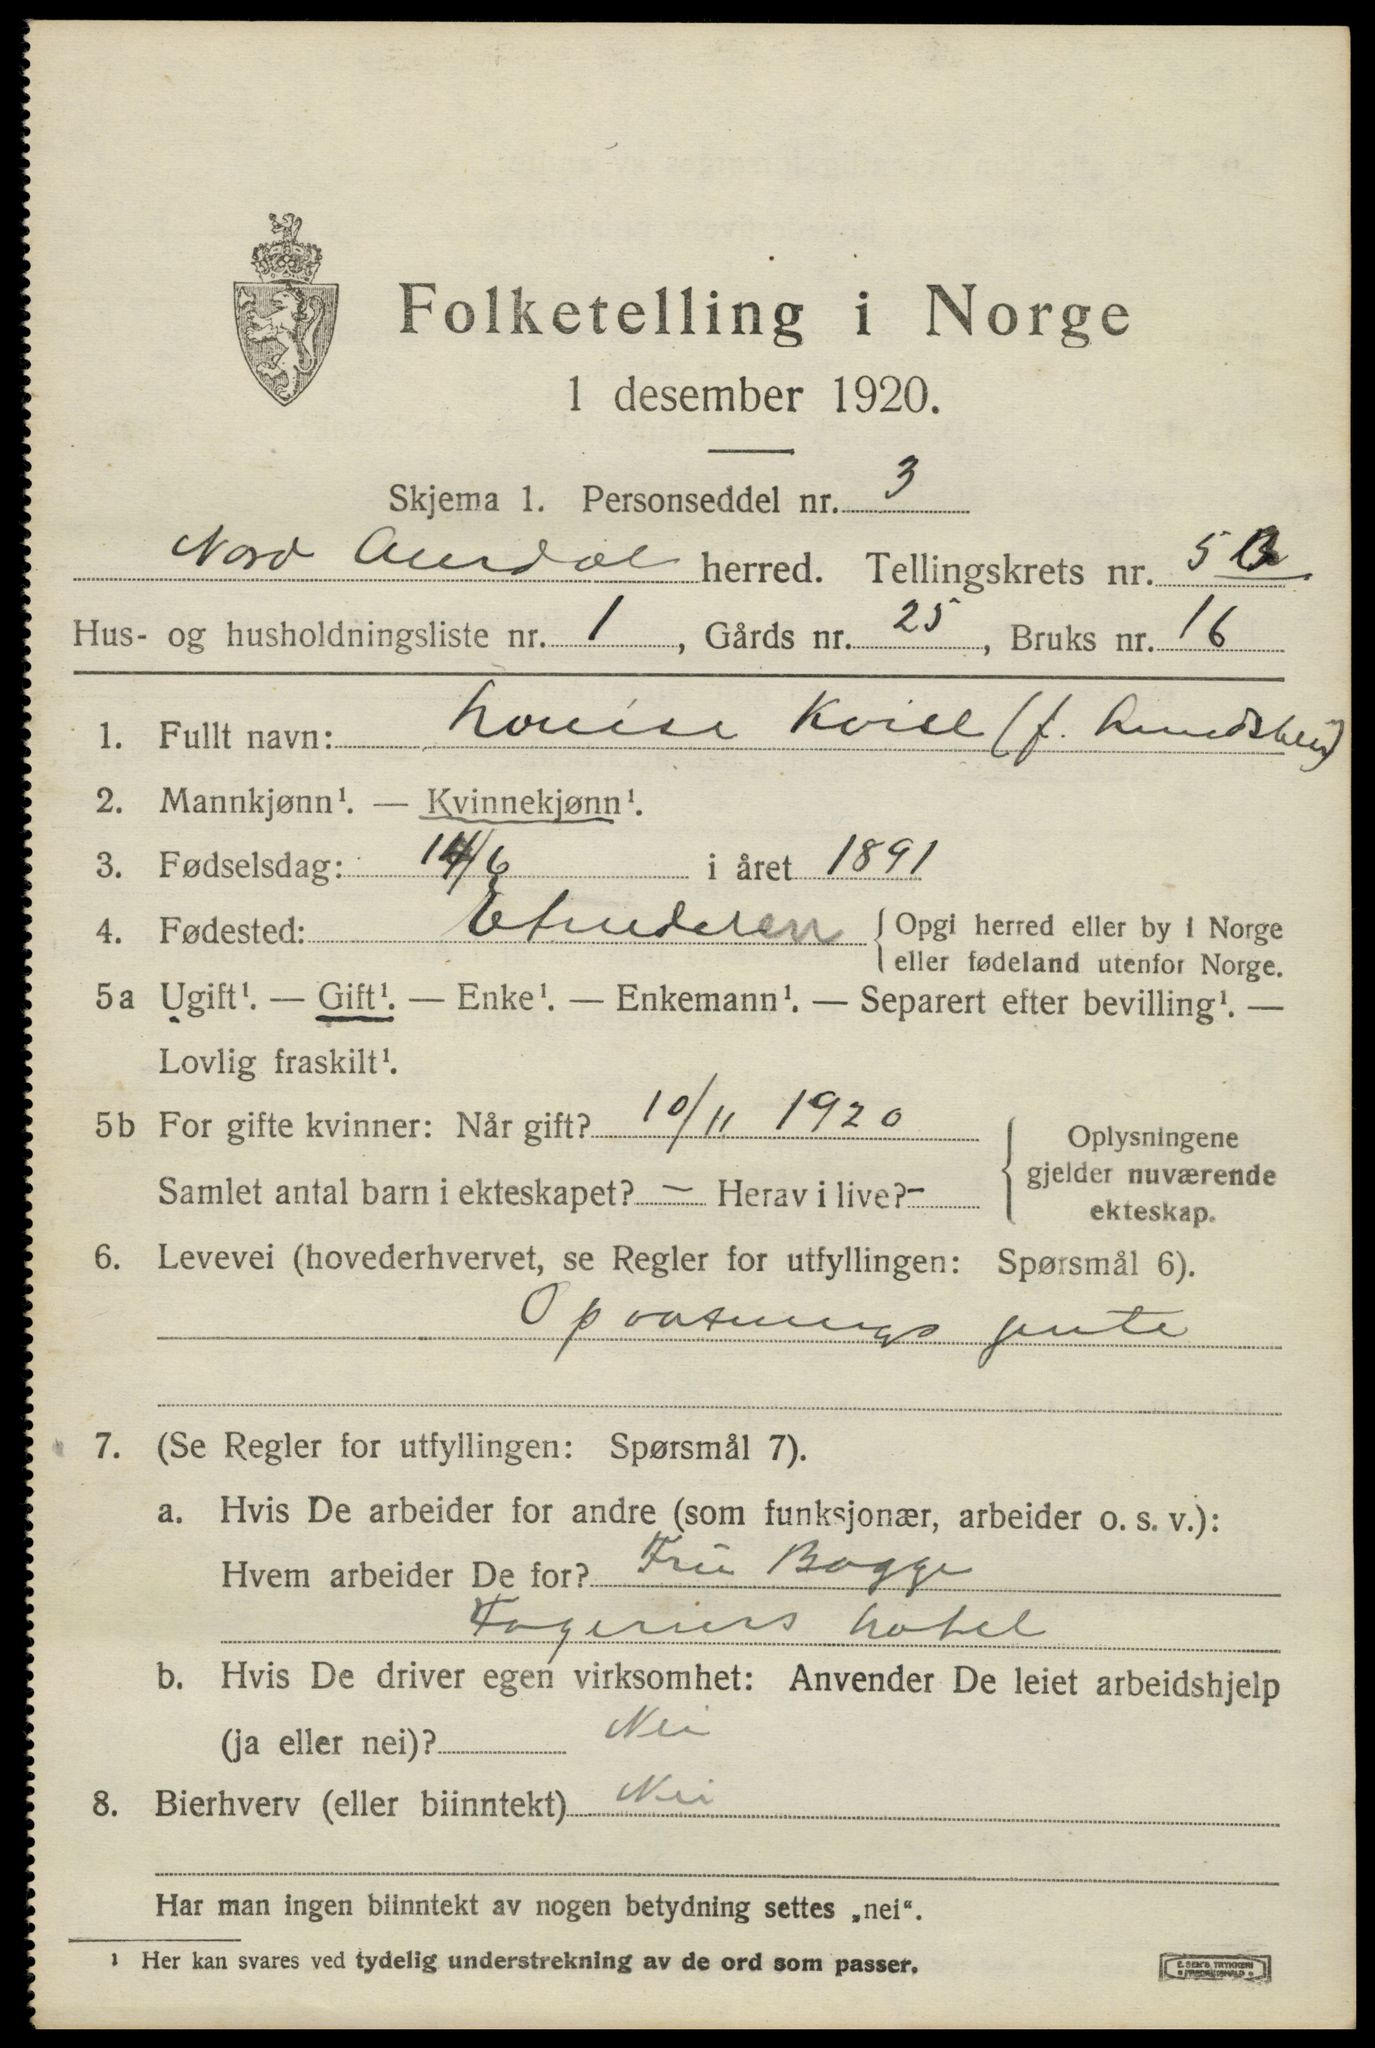 Folketelling i Norge
1 desember 1920.
Skjema 1. Personseddel nr. 3
Nord Aurdal herred. Tellingskrets nr. 5 B
Hus- og husholdningsliste nr. 1, Gårds nr. 25, Bruks nr. 16
1. Fullt navn: Louise Kviel (f.
2. Mannkjønn¹. — Kvinnekjønn¹.
3. Fødselsdag: 14/6 i året 1891
4. Fødested: Etnedalen { Opgi herred eller by i Norge
eller fødeland utenfor Norge.
5a Ugift¹. — Gift¹. — Enke¹. — Enkemann¹. — Separert efter bevilling¹. —
Lovlig fraskilt¹.
5b For gifte kvinner: Når gift? 10/11 1920
Samlet antal barn i ekteskapet? — Herav i live? —
Oplysningene
gjelder nuværende
ekteskap.
6. Levevei (hovederhvervet, se Regler for utfyllingen: Spørsmål 6).
Opvartnings jente
7. (Se Regler for utfyllingen: Spørsmål 7).
a. Hvis De arbeider for andre (som funksjonær, arbeider o. s. v.):
Hvem arbeider De for? Fru Bagge
Fagernes hotel
b. Hvis De driver egen virksomhet: Anvender De leiet arbeidshjelp
(ja eller nei)? Nei
8. Bierhverv (eller biinntekt) Nei
Har man ingen biinntekt av nogen betydning settes „nei“.
¹ Her kan svares ved tydelig understrekning av de ord som passer.
E. SEM'S TRYKKERI
FREDRIKSHALD